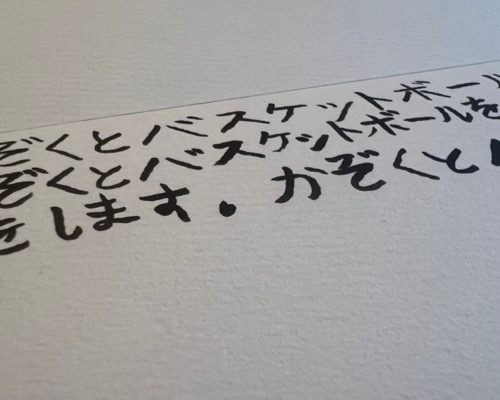 ぞくとバスケットボール
ぞくとバスケットボールを
をします。かぞくと